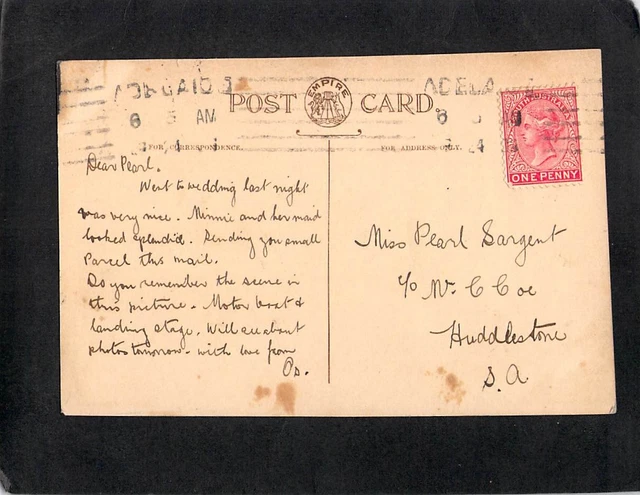 ADELAIDE
6 AM
ADELA
6
24
POST CARD.
EMPIRE
SOUTH AUSTRALIA
ONE PENNY
FOR CORRESPONDENCE.
FOR ADDRESS ONLY.
Dear Pearl.
Went to wedding last night
was very nice. Minnie and her maid
looked splendid. Sending you small
Parcel this mail.
Do you remember the scene in
this picture. Motor boat &
landing stage. Will see about
photos tomorrow. with love from
Miss Pearl Sargent
c/o Mr. C Coe
Huddlestone
S.A.